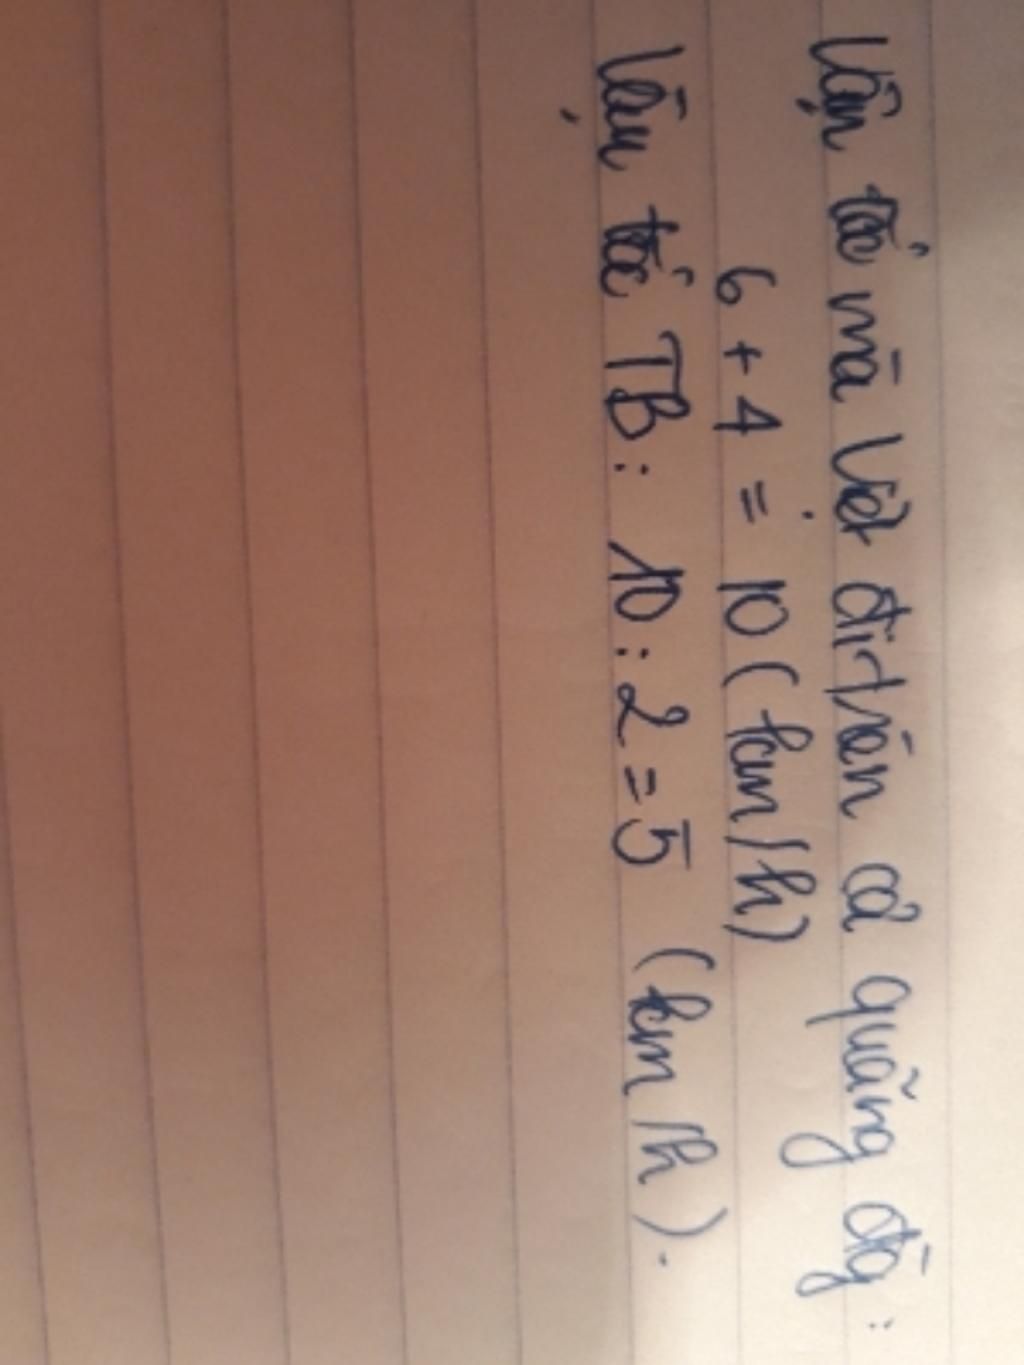 Vận tốc mà Việt đi trên cả quãng đg̀:
6 + 4 = 10 (km/h)
Vận tốc TB: 10 : 2 = 5 (km/h).